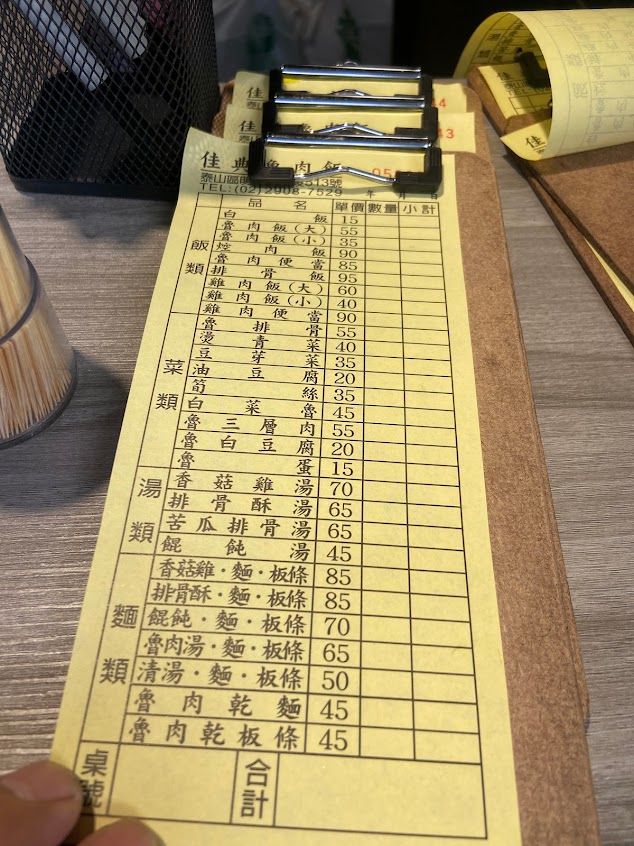 佳典魯肉飯
泰山區明 513號
TEL:(02)2908-7529 年 月 日
品名 單價 數量 小計
飯類
白飯 15
魯肉飯(大) 55
魯肉飯(小) 35
焢肉飯 90
魯肉便當 85
排骨飯 95
雞肉飯(大) 60
雞肉飯(小) 40
雞肉便當 90
菜類
魯排骨 55
燙青菜 40
豆芽菜 35
油豆腐 20
筍絲 35
白菜魯 45
魯三層肉 55
魯白豆腐 20
魯蛋 15
湯類
香菇雞湯 70
排骨酥湯 65
苦瓜排骨湯 65
餛飩湯 45
麵類
香菇雞·麵·板條 85
排骨酥·麵·板條 85
餛飩·麵·板條 70
魯肉湯·麵·板條 65
清湯·麵·板條 50
魯肉乾麵 45
魯肉乾板條 45
桌號 合計